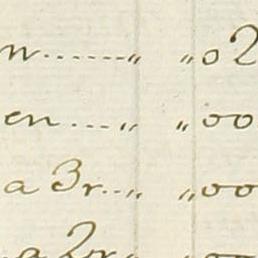 w......." "02
en...." "00
a 3r..." "00
a 2r " 00